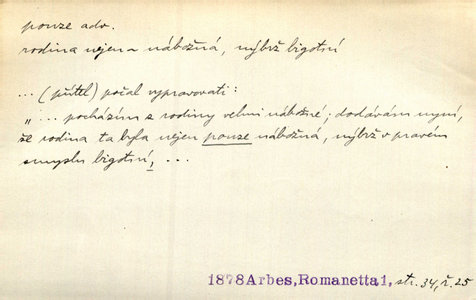 pouze adv.
rodina nejen nábožná, nýbrž bigotní
... (přítel) počal vypravovati:
„ ... pocházím z rodiny velmi nábožné; dodávám nyní,
že rodina ta byla nejen pouze nábožná, nýbrž v pravém
smyslu bigotní, ...
1878 Arbes, Romanetta 1, str. 34, ř. 25